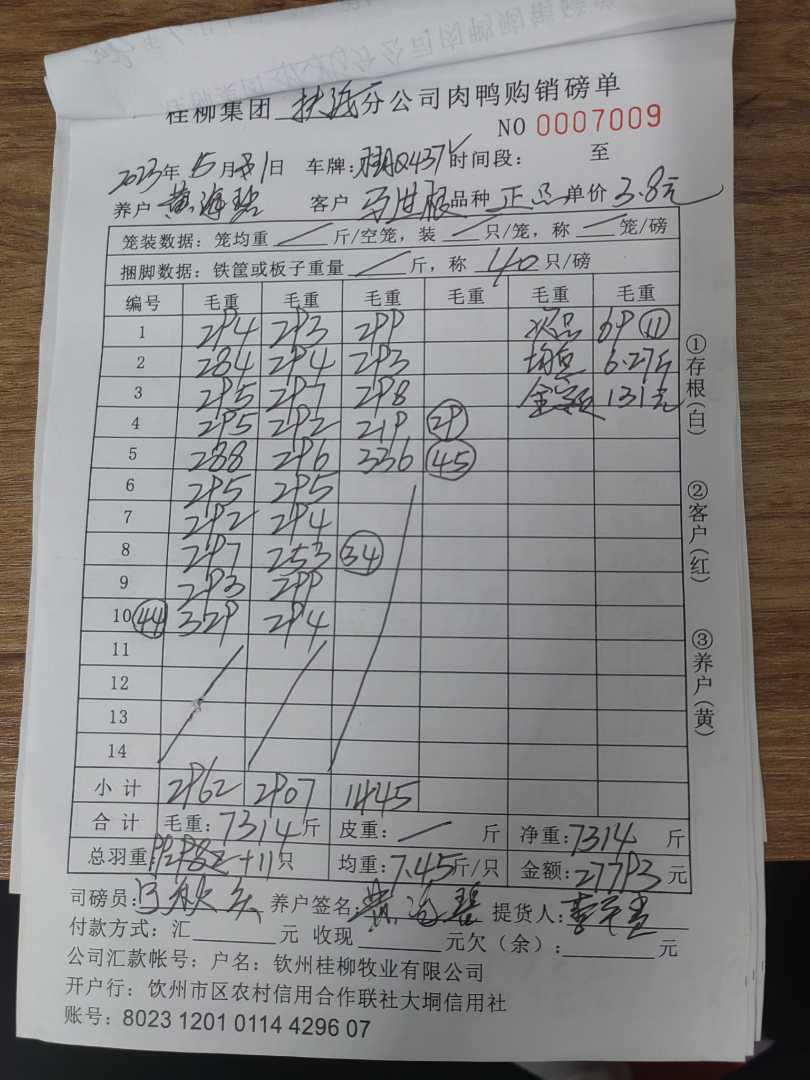 桂柳集团 扶绥 分公司肉鸭购销磅单
NO 0007009
2023年 5月 21日 车牌:桂AQ437 时间段: 至
养户 黄海碧 客户 马世根 品种 正品 单价 3.8元
笼装数据:笼均重 / 斤/空笼,装 / 只/笼,称 / 笼/磅
捆脚数据:铁筐或板子重量 / 斤,称 40 只/磅
编号 毛重 毛重 毛重 毛重 毛重 毛重
1 294 293 299 次品 69 ⑪
2 284 294 293 均重 6.27斤
3 295 297 298 金额 131元
4 295 292 219 29
5 288 296 336 45
6 295 295
7 292 294
8 297 253 34
9 293 299
10 44 329 294
11
12
13
14
小计 2962 2907 1445
合计 毛重:7314斤 皮重:/ 斤 净重:7314 斤
总羽重 +11只 均重:7.45斤/只 金额:27793元
司磅员: 养户签名:黄海碧 提货人:
付款方式:汇 元 收现 元欠(余): 元
公司汇款帐号:户名:钦州桂柳牧业有限公司
开户行:钦州市区农村信用合作联社大垌信用社
账号:8023 1201 0114 4296 07
①存根(白)
②客户(红)
③养户(黄)